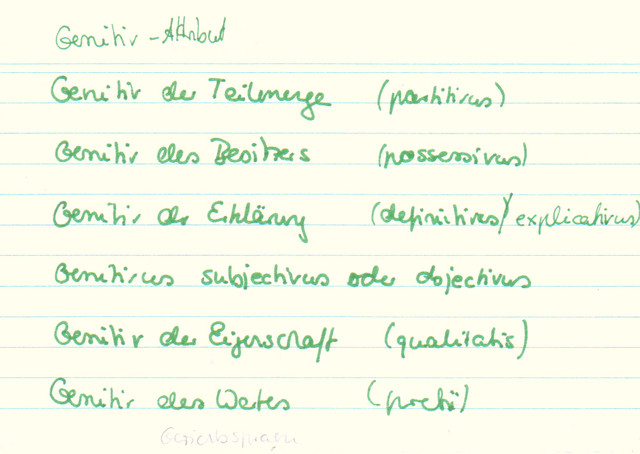 Genitiv-Attribut
Genitiv der Teilmenge (partitivus)
Genitiv des Besitzers (possessivus)
Genitiv der Erklärung (definitivus)/explicativus)
Genitivus subjectivus oder objectivus
Genitiv der Eigenschaft (qualitatis)
Genitiv des Wertes (pretii)